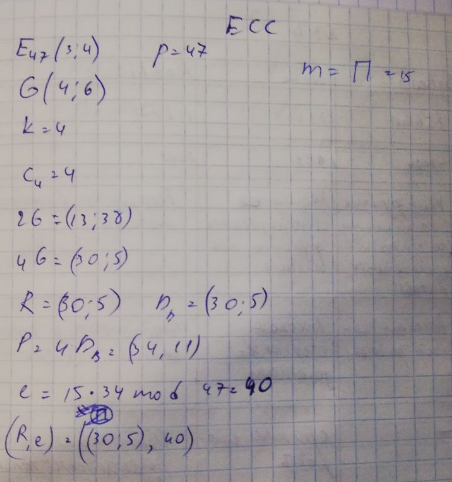 ECC
E₄₇(3;4) p=47
m = П = 15
G(4;6)
k=4
C₄=4
2G=(13;38)
4G=(30;5)
R=(30;5) D_B=(30;5)
P=4D_B=(34,11)
e = 15·34 mod 47=40
(R,e)=((30;5),40)